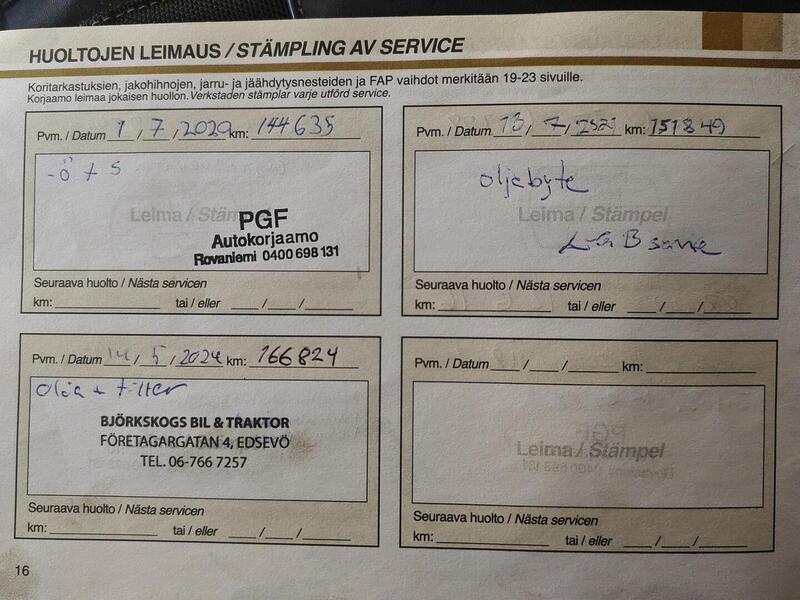 HUOLTOJEN LEIMAUS / STÄMPLING AV SERVICE
Koritarkastuksien, jakohihnojen, jarru- ja jäähdytysnesteiden ja FAP vaihdot merkitään 19-23 sivuille.
Korjaamo leimaa jokaisen huollon. Verkstaden stämplar varje utförd service.
Pvm. / Datum 1 / 7 / 2020 km: 144635
-ö + s
Leima / Stämpel
PGF
Autokorjaamo
Rovaniemi 0400 698 131
Seuraava huolto / Nästa servicen
km: tai / eller / /
Pvm. / Datum 13 / 7 / 2021 km: 151849
oljebyte
Leima / Stämpel
B
Seuraava huolto / Nästa servicen
km: tai / eller / /
Pvm. / Datum 14 / 5 / 2024 km: 166824
olja + filter
BJÖRKSKOGS BIL & TRAKTOR
FÖRETAGARGATAN 4, EDSEVÖ
TEL. 06-766 7257
Seuraava huolto / Nästa servicen
km: tai / eller / /
Pvm. / Datum / / km:
Leima / Stämpel
Seuraava huolto / Nästa servicen
km: tai / eller / /
16